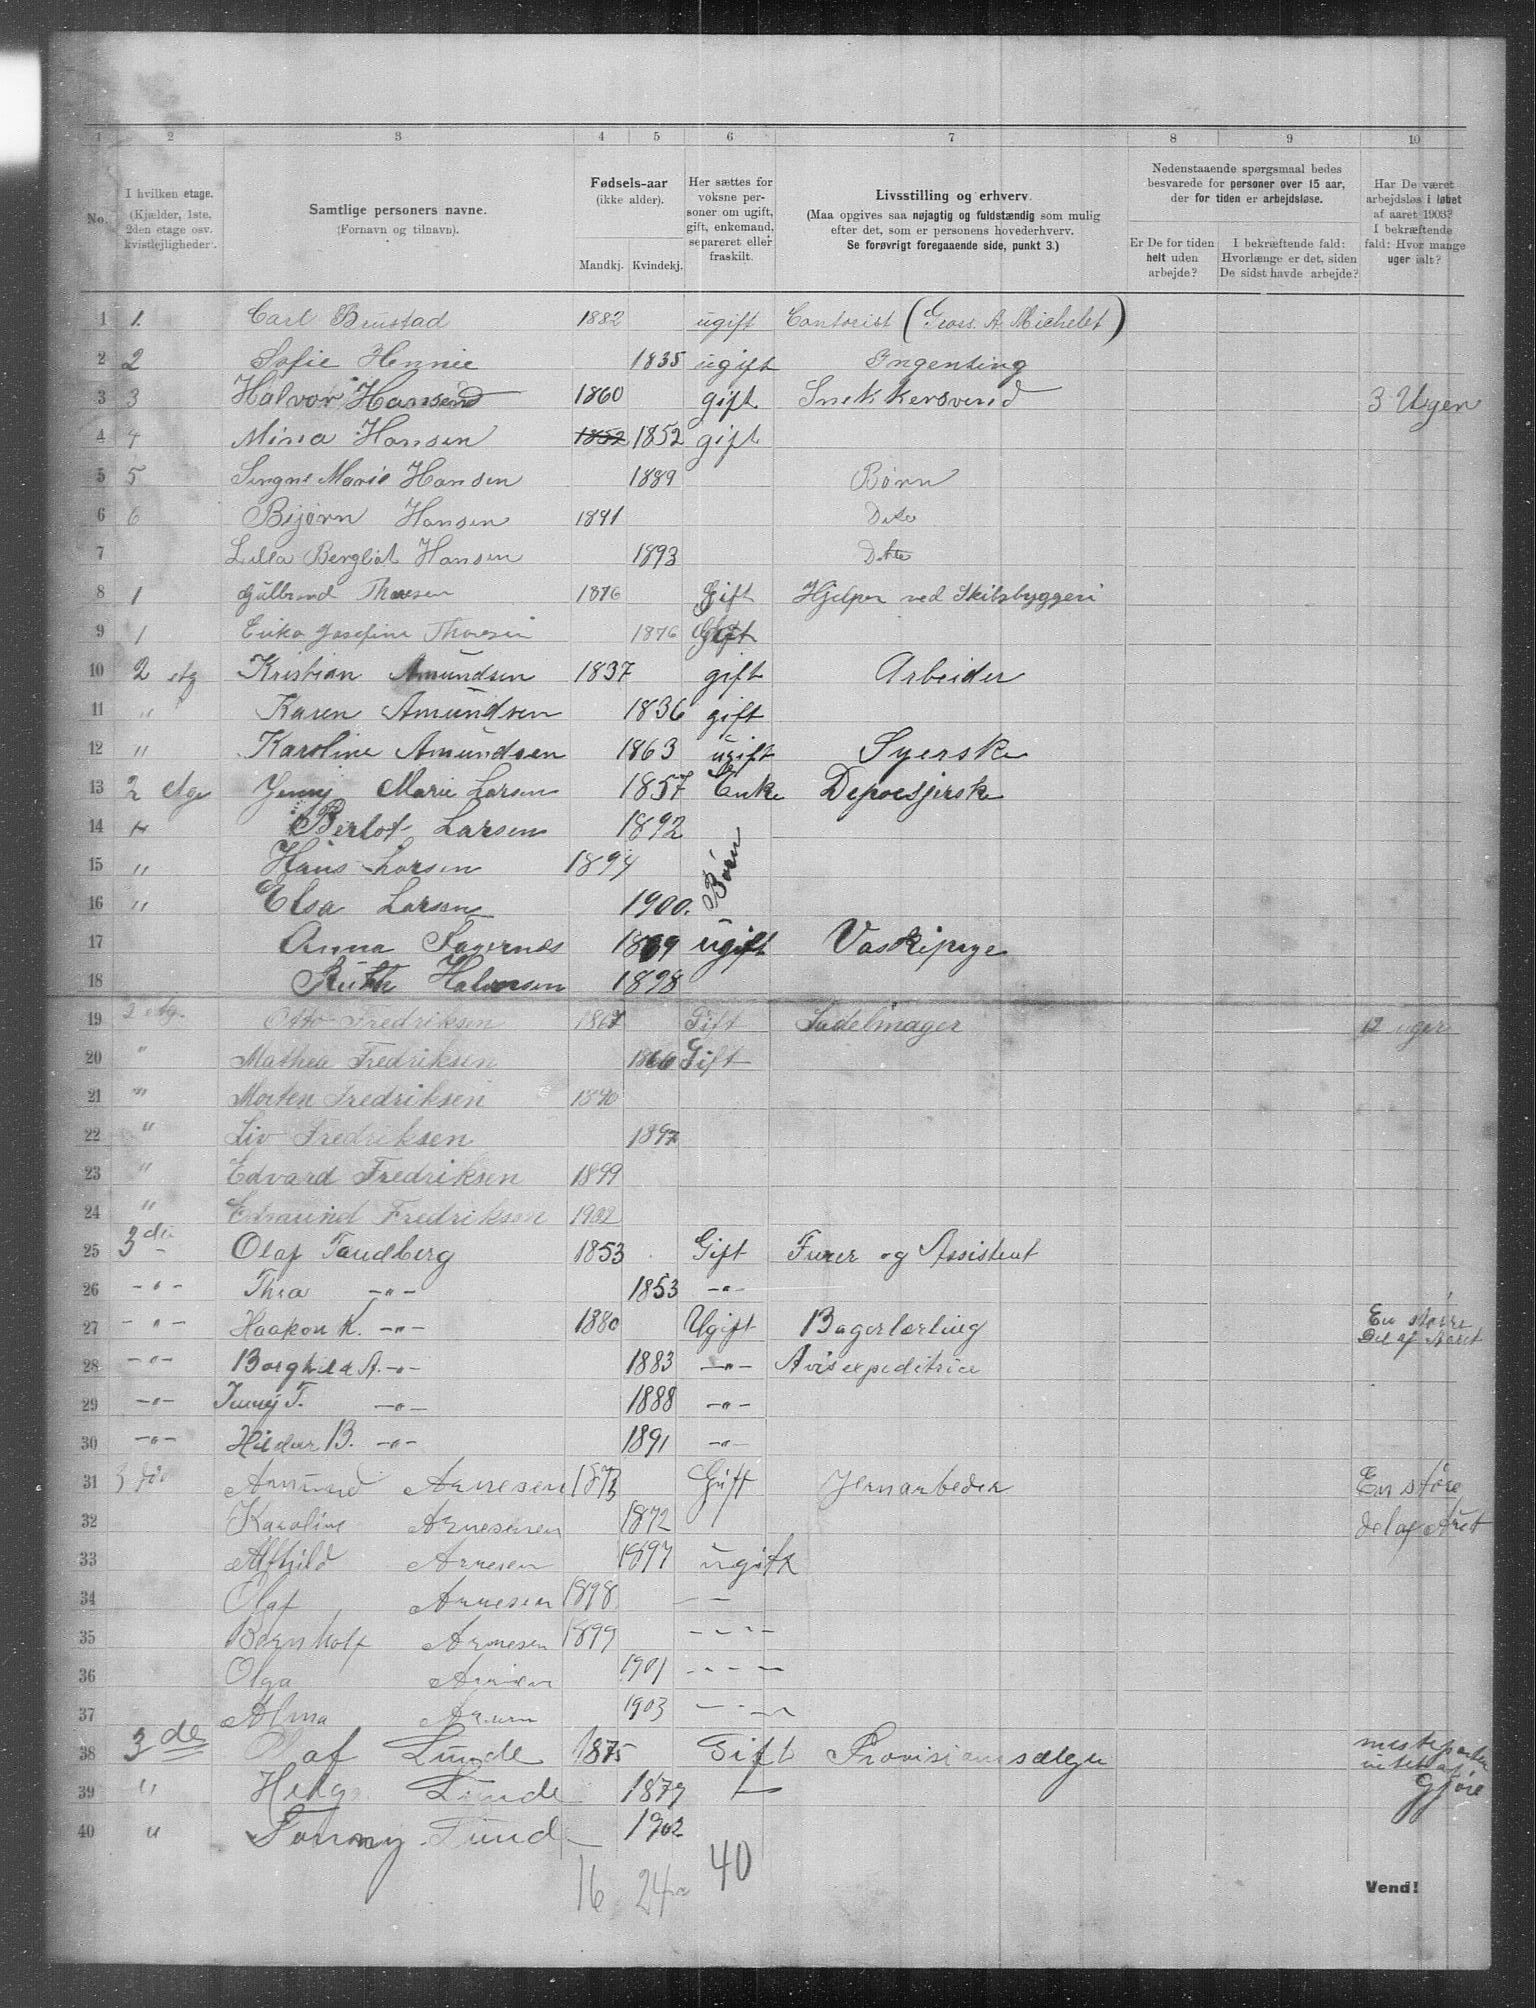 1 2 3 4 5 6 7 8 9 10
No.
I hvilken etage.
(Kjælder, 1ste,
2den etage osv.
kvistlejligheder).
Samtlige personers navne.
(Fornavn og tilnavn).
Fødsels-aar
(ikke alder).
Mandkj. Kvindekj.
Her sættes for
voksne per-
soner om ugift,
gift, enkemand,
separeret eller
fraskilt.
Livsstilling og erhverv.
(Maa opgives saa nøjagtig og fuldstændig som mulig
efter det, som er personens hovederhverv.
Se forøvrigt foregaaende side, punkt 3.)
Nedenstaaende spørgsmaal bedes
besvarede for personer over 15 aar,
der for tiden er arbejdsløse.
Er De for tiden
helt uden
arbejde?
I bekræftende fald:
Hvorlænge er det, siden
De sidst havde arbejde?
Har De været
arbejdsløs i løbet
af aaret 1903?
I bekræftende
fald: Hvor mange
uger ialt?
1 1. Carl Brustad 1882 ugift Contorist (Gross. A. Michelet)
2 2 Sofie Hennie 1835 ugift Ingenting
3 3 Halvor Hansen 1860 gift Snekkersvend 3 Ugen
4 4 Mina Hansen 1852 1852 gift
5 5 Singne Marie Hansen 1889 Børn
6 6 Bijørn Hansen 1891 Dito
7 Lilla Bergliot Hansen 1893 Ditto
8 1 Gulbrand Thoresen 1876 Gift Hjelper ved Skibsbyggeri
9 1 Erika Josefine Thoresen 1876 Gift
10 2 etg Kristian Amundsen 1837 gift Arbeider
11 " Karen Amundsen 1836 gift
12 " Karoline Amundsen 1863 ugift Syerske
13 2 etg Jenny Marie Larsen 1857 Enke
14 " Berlot Larsen 1892 Børn
15 " Hans Larsen 1894
16 " Elsa Larsen 1900.
17 Anna Sagernes 1869 ugift Vaskepige
18 Ruth Halvorsen 1898
19 2 etg. Otto Fredriksen 1867 Gift Sadelmager 12 uger
20 " Mathea Fredriksen 1866 Gift
21 " Morten Fredriksen 1890
22 " Liv Fredriksen 1897
23 " Edvard Fredriksen 1899
24 " Edmund Fredriksen 1902
25 3die Olaf Tandberg 1853 Gift Furer og Assistent
26 -"- Thra -"- 1853 -"-
27 -"- Haakon K. -"- 1880 Ugift Bagerlærling En større Del af Aaret
28 -"- Borghild A. -"- 1883 -"- Avisexpeditrice
29 -"- Jenny T. -"- 1888 -"-
30 -"- Hildur B. -"- 1891 -"-
31 3die Amund Arnesen 1873 Gift Jernarbeder En støre
32 Karoline Arnesen 1872 del af Aret
33 Alfhild Arnesen 1897 ugift
34 Olaf Arnesen 1898 - -
35 Bernholf Arnesen 1899 - - - -
36 Olga Arnesen 1901 - - - -
37 Alma Arnesen 1903 - - -
38 3de Olaf Lunde 1875 Gift Provisionsælger
39 " Helga Lunde 1879 -
40 " Fanny Lund 1902
16 24 40
Vend!